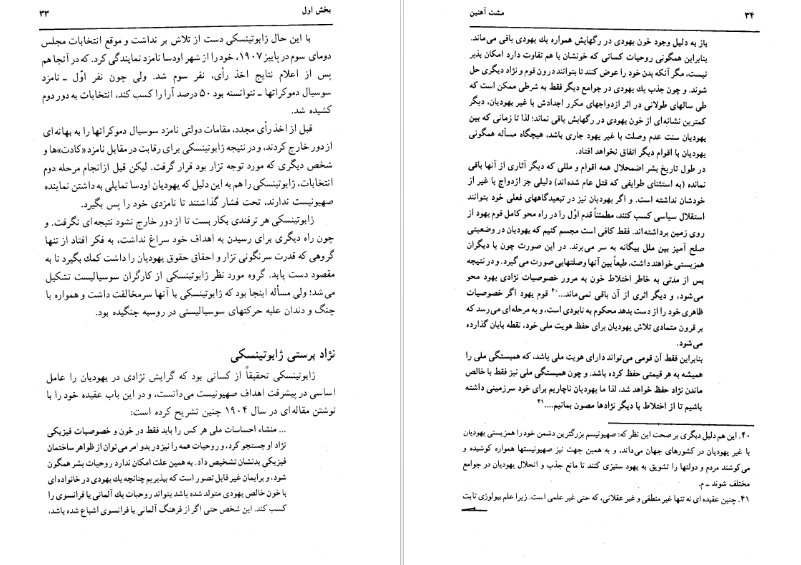 بخش اول
۳۳
با این حال ژابوتینسکی دست از تلاش بر نداشت و موقع انتخابات مجلس
دومای سوم در پاییز ۱۹۰۷، خود را از شهر اودسا نامزد نمایندگی کرد. که در آنجا هم
پس از اعلام نتایج اخذ رأی، نفر سوم شد. ولی چون نفر اوّل ـ نامزد
سوسیال دموکراتها ـ نتوانسته بود ۵۰ درصد آرا را کسب کند، انتخابات به دور دوم
کشیده شد.
قبل از اخذ رأی مجدد، مقامات دولتی نامزد سوسیال دموکراتها را به بهانه‌ای
از دور خارج کردند، و در نتیجه ژابوتینسکی برای رقابت در مقابل نامزد «کادت»ها و
شخص دیگری که مورد توجه تزار بود قرار گرفت. لیکن قبل از انجام مرحله دوم
انتخابات، ژابوتینسکی را هم به این دلیل که یهودیان اودسا تمایلی به داشتن نماینده
صهیونیست ندارند، تحت فشار گذاشتند تا نامزدی خود را پس بگیرد.
ژابوتینسکی هر ترفندی بکار بست تا از دور خارج نشود نتیجه‌ای نگرفت. و
چون راه دیگری برای رسیدن به اهداف خود سراغ نداشت، به فکر افتاد از تنها
گروهی که قدرت سرنگونی تزار و احقاق حقوق یهودیان را داشت کمك بگیرد تا به
مقصود دست یابد. گروه مورد نظر ژابوتینسکی از کارگران سوسیالیست تشکیل
می‌شد؛ ولی مسأله اینجا بود که ژابوتینسکی با آنها سر مخالفت داشت و همواره با
چنگ و دندان علیه حرکتهای سوسیالیستی در روسیه جنگیده بود.
نژاد پرستی ژابوتینسکی
ژابوتینسکی تحقیقاً از کسانی بود که گرایش نژادی در یهودیان را عامل
اساسی در پیشرفت اهداف صهیونیست می‌دانست، و در این باب عقیده خود را با
نوشتن مقاله‌ای در سال ۱۹۰۴ چنین تشریح کرده است:
... منشاء احساسات ملی هر کس را باید فقط در خون و خصوصیات فیزیکی
نژاد او جستجو کرد، و روحیات همه را نیز در بدو امر می‌توان از ظواهر ساختمان
فیزیکی بدنشان تشخیص داد. به همین علت امکان ندارد روحیات بشر همگون
شود، و برایمان غیر قابل تصور است که بپذیریم چنانچه یك یهودی در خانواده‌ای
با خون خالص یهودی متولد شده باشد بتواند روحیات یك آلمانی یا فرانسوی را
کسب کند. این شخص حتی اگر از فرهنگ آلمانی یا فرانسوی اشباع شده باشد،
مشت آهنین
۳۴
باز به دلیل وجود خون یهودی در رگهایش همواره یك یهودی باقی می‌ماند.
بنابراین همگونی روحیات کسانی که خونشان با هم تفاوت دارد امکان پذیر
نیست، مگر آنکه بدن خود را عوض کنند تا بتوانند درون قوم و نژاد دیگری حل
شوند. و چون جذب یك یهودی در جوامع دیگر فقط به شرطی ممکن است که
طی سالهای طولانی در اثر ازدواجهای مکرر اجدادش با غیر یهودیان، دیگر
کمترین نشانه‌ای از خون یهودی در رگهایش باقی نماند؛ لذا تا زمانی که بین
یهودیان سنت عدم وصلت با غیر یهود جاری باشد، هیچگاه مسأله همگونی
یهودیان با اقوام دیگر اتفاق نخواهد افتاد.
در طول تاریخ بشر اضمحلال همه اقوام و مللی که دیگر آثاری از آنها باقی
نمانده (به استثنای طوایفی که قتل عام شده‌اند) دلیلی جز ازدواج با غیر از
خودشان نداشته است. و اگر یهودیان نیز در تبعیدگاههای فعلی خود بتوانند
استقلال سیاسی کسب کنند، مطمئناً قدم اوّل را در راه محو کامل قوم یهود از
روی زمین برداشته‌اند. فقط کافی است مجسم کنیم که یهودیان در وضعیتی
صلح آمیز بین ملل بیگانه به سر می‌برند. در این صورت چون با دیگران
همزیستی خواهند داشت، طبعاً بین آنها وصلتهایی صورت می گیرد. و در نتیجه
پس از مدتی به خاطر اختلاط خون به مرور خصوصیات نژادی یهود محو
می‌شود، و دیگر اثری از آن باقی نمی‌ماند...۴۰ قوم یهود اگر خصوصیات
ظاهری خود را از دست بدهد محکوم به نابودی است، و به مرحله‌ای می‌رسد که
بر قرون متمادی تلاش یهودیان برای حفظ هویت ملی خود، نقطه پایان گذارده
می‌شود.
بنابراین فقط آن قومی می‌تواند دارای هویت ملی باشد، که همبستگی ملی را
همیشه به هر قیمتی حفظ کرده باشد. و چون همبستگی ملی نیز فقط با خالص
ماندن نژاد حفظ خواهد شد، لذا ما یهودیان ناچاریم برای خود سرزمینی داشته
باشیم تا از اختلاط با دیگر نژادها مصون بمانیم....۴۱
۴۰. این هم دلیل دیگری بر صحت این نظر که: صهیونیسم بزرگترین دشمن خود را همزیستی یهودیان
با غیر یهودیان در کشورهای جهان می‌داند، و به همین جهت نیز صهیونیستها همواره کوشیده و
می‌کوشند مردم و دولتها را تشویق به یهود ستیزی کنند تا مانع جذب و انحلال یهودیان در جوامع
مختلف شوند ـ م.
۴۱. چنین عقیده‌ای نه تنها غیر منطقی و غیر عقلانی، که حتی غیر علمی است. زیرا علم بیولوژی ثابت